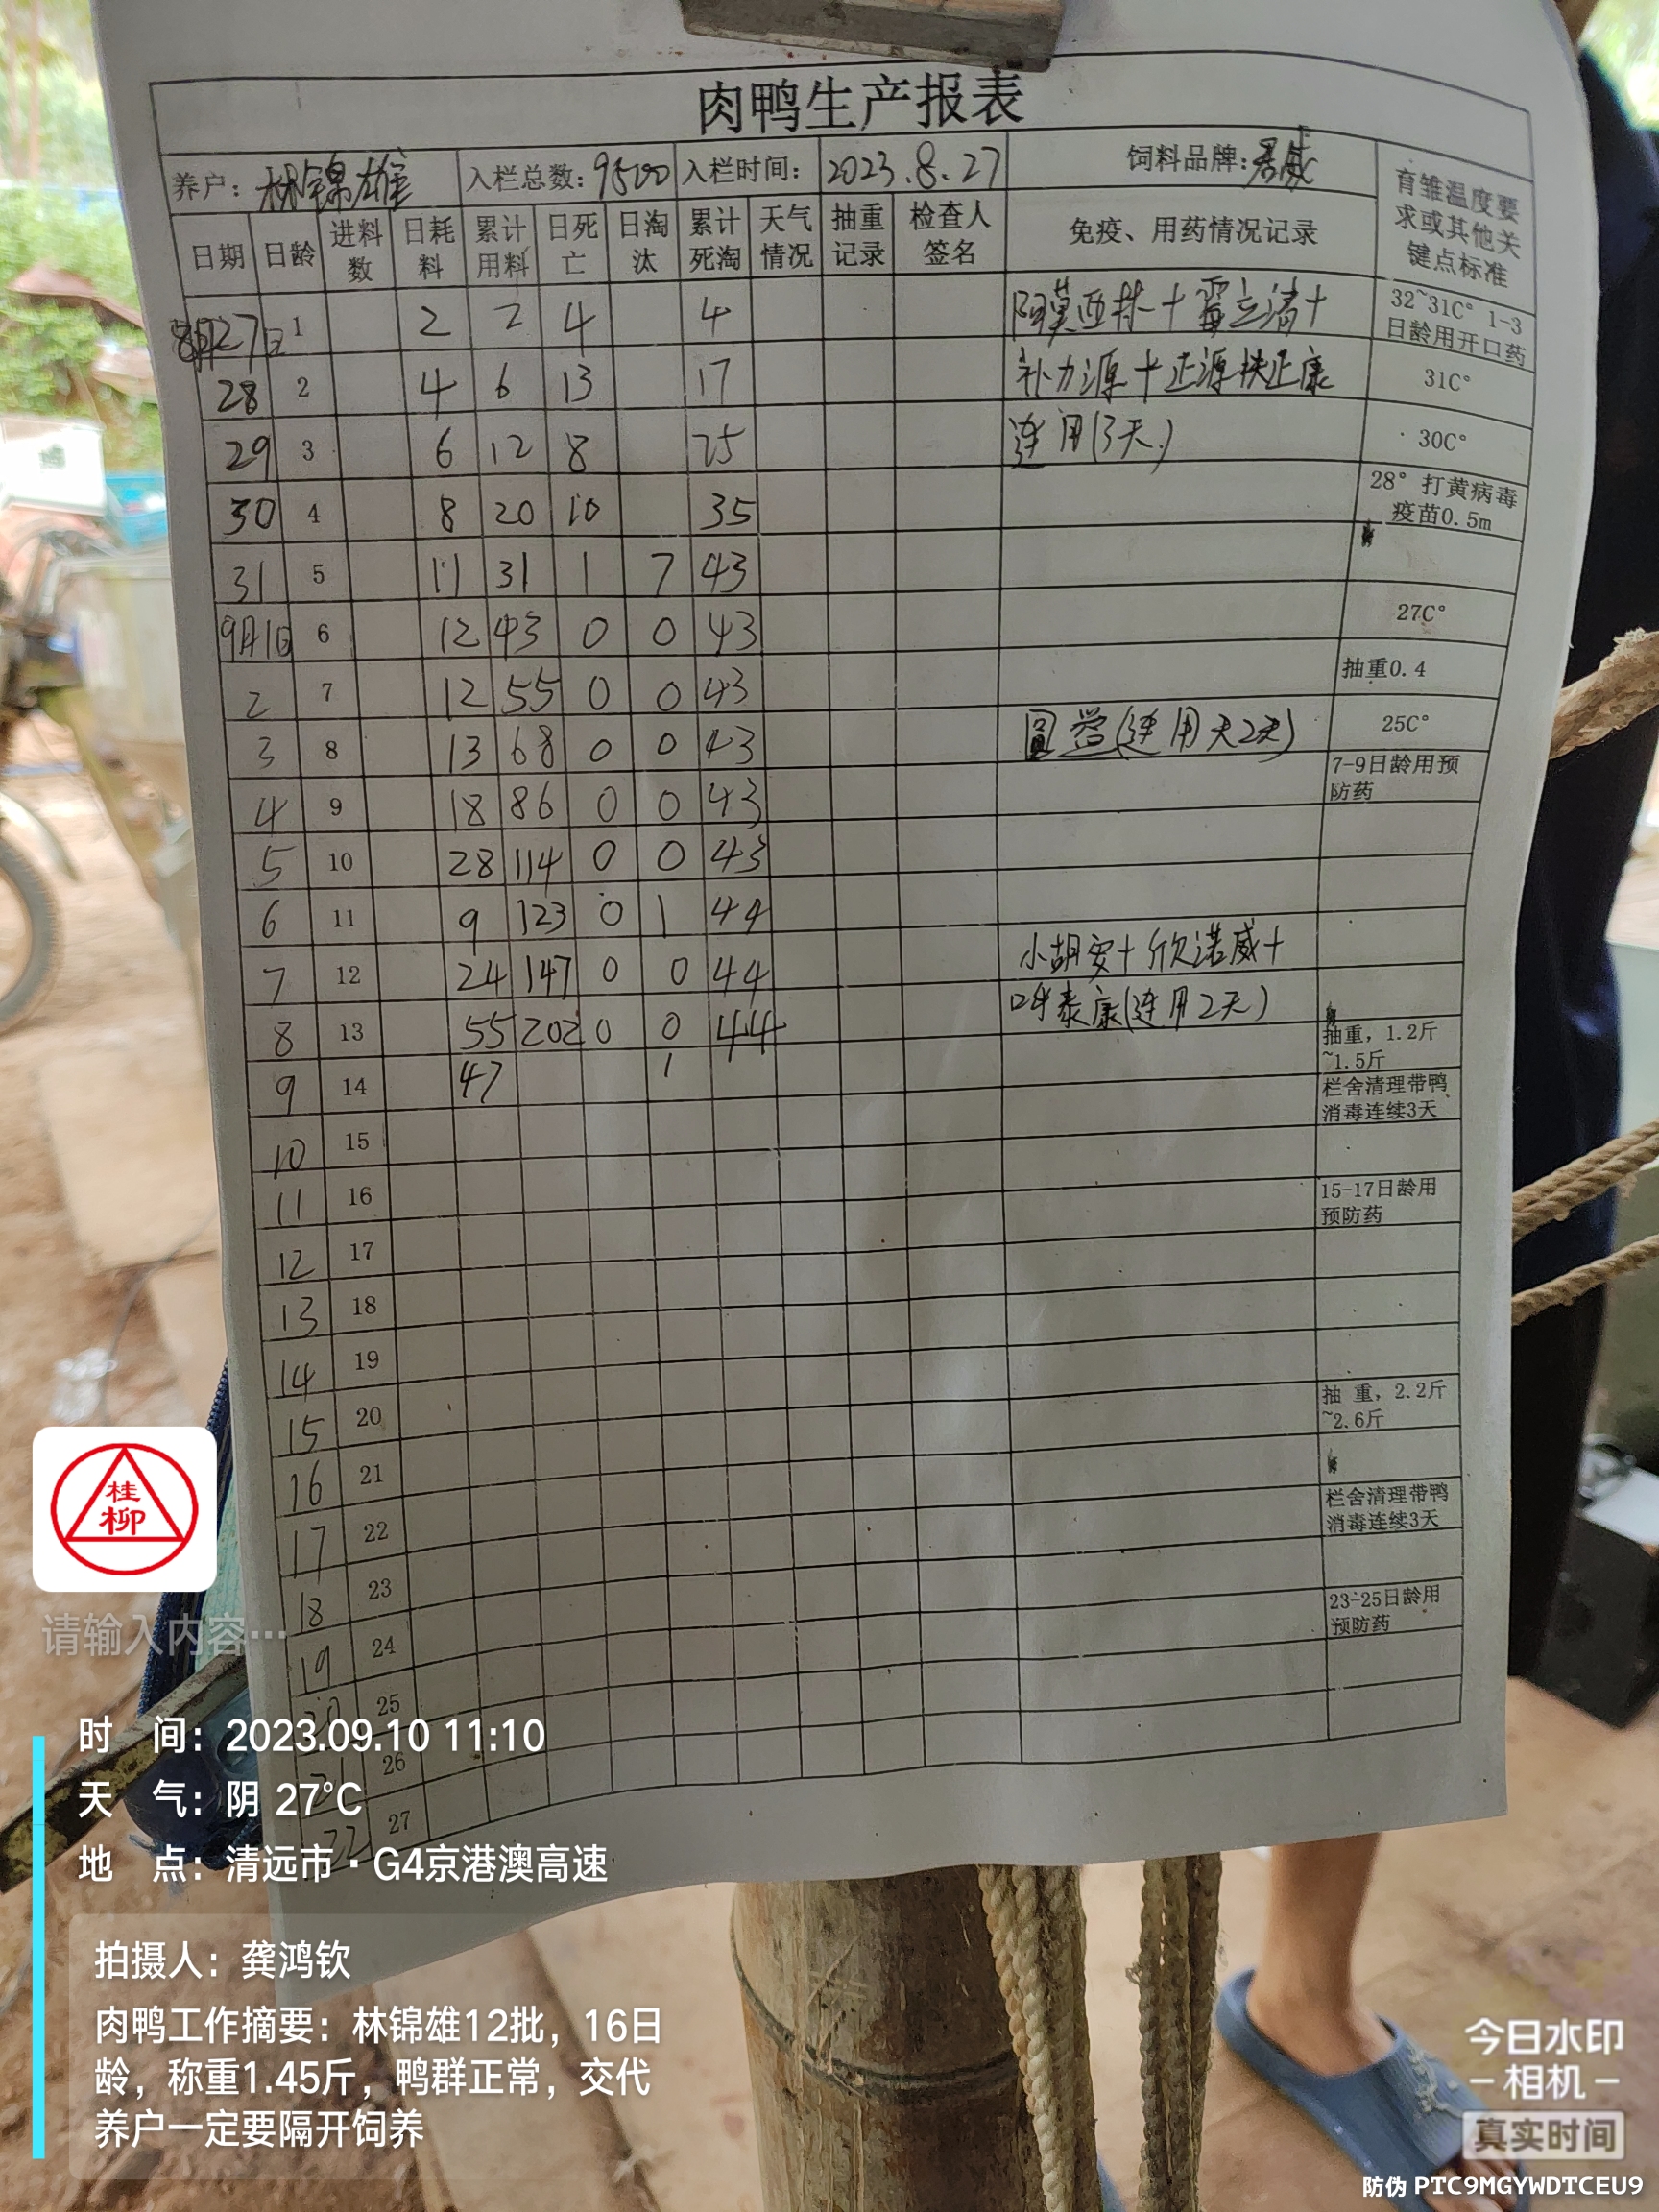 肉鸭生产报表
养户: 林锦雄 入栏总数: 9500 入栏时间: 2023.8.27 饲料品牌: 君威 育雏温度要求或其他关键点标准
日期 日龄 进料数 日耗料 累计用料 日死亡 日淘汰 累计死淘 天气情况 抽重记录 检查人签名 免疫、用药情况记录
8月27日 1 2 2 4 4 阿莫西林+霉立清+ 32~31C° 1-3日龄用开口药
28 2 4 6 13 17 补力源+正源扶正康 31C°
29 3 6 12 8 25 连用(3天) 30C°
30 4 8 20 10 35 28° 打黄病毒疫苗0.5m
31 5 11 31 1 7 43
9月1日 6 12 43 0 0 43 27C°
2 7 12 55 0 0 43 抽重0.4
3 8 13 68 0 0 43 (连用天2天) 25C°
4 9 18 86 0 0 43 7-9日龄用预防药
5 10 28 114 0 0 43
6 11 9 123 0 1 44
7 12 24 147 0 0 44 小胡安+欣诺威+
8 13 55 202 0 0 44 呼泰康(连用2天) 抽重, 1.2斤~1.5斤
9 14 47 1 栏舍清理带鸭消毒连续3天
10 15
11 16 15-17日龄用预防药
12 17
13 18
14 19
15 20 抽 重, 2.2斤~2.6斤
16 21
17 22 栏舍清理带鸭消毒连续3天
18 23
19 24 23-25日龄用预防药
20 25
21 26
22 27
桂
柳
请输入内容…
时 间: 2023.09.10 11:10
天 气: 阴 27°C
地 点: 清远市·G4京港澳高速
拍摄人: 龚鸿钦
肉鸭工作摘要: 林锦雄12批, 16日
龄, 称重1.45斤, 鸭群正常, 交代
养户一定要隔开饲养
今日水印
相机
真实时间
防伪 PTC9MGYWDTCEU9